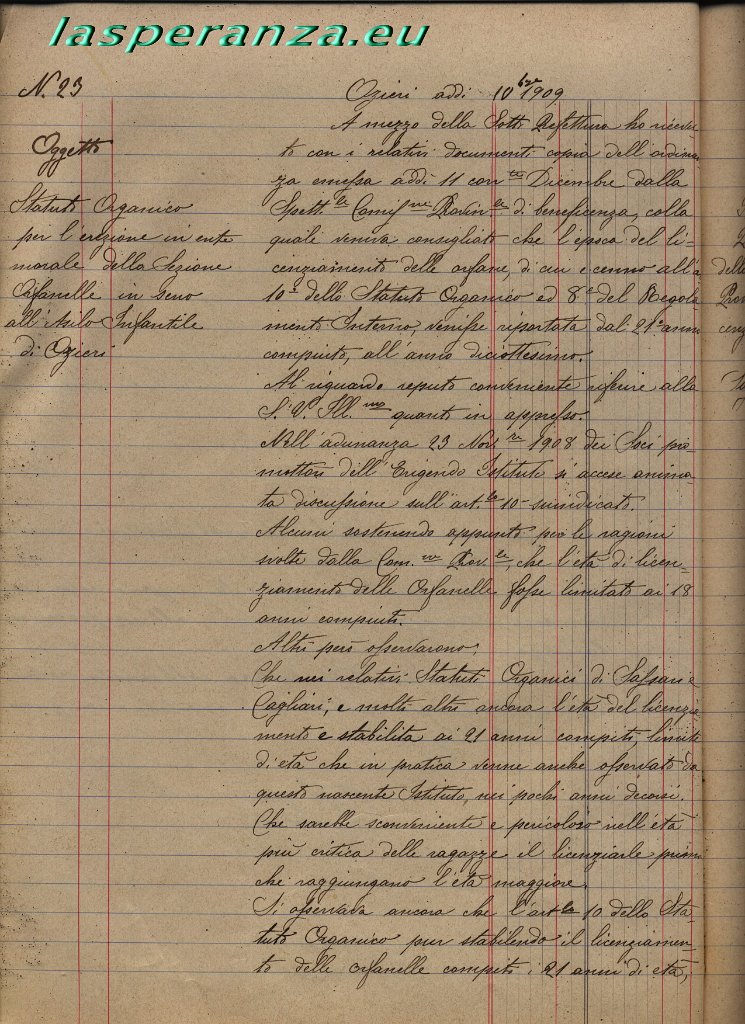 lasperanza.eu
N. 23
Ozieri addì 10 bre 1909
Oggetto
Statuto Organico
per l'erezione in ente
morale della Sezione
Orfanelle in seno
all'Asilo Infantile
di Ozieri
A mezzo della Sotto Prefettura ho ricevu-
to con i relativi documenti copia dell'ordinan
za emessa addì 11 corr te Dicembre dalla
Spett. le Comis ne Provin le di beneficenza, colla
quali veniva consigliato che l'epoca del li-
cenziamento delle orfane, di cui è cenno all'a
10° dello Statuto Organico ed 8° del Regola
mento Interno, venisse riportata dal 21° anno
compiuto, all'anno diciottesimo.
Al riguardo reputo conveniente riferire alla
S. V. Ill. mo quanto in appresso.
Nell'adunanza 23 Nov. re 1908 dei Soci pro-
mottori dell'Erigendo Istituto si accese anima-
ta discussione sull'art. lo 10 suindicato.
Alcuni sostenendo appunto per le ragioni
svolte dalla Com. ne Prov. le, che l'età di licen-
ziamento delle Orfanelle fosse limitato ai 18
anni compiuti.
Altri però osservarono:
Che nei relativi Statuti Organici di Sassari e
Cagliari, e molti altri ancora l'età del licenzia-
mento e stabilita ai 21 anni compiti, limite
d'età che in pratica venne anche osservato da
questo nascente Istituto, nei pochi anni decorsi.
Che sarebbe sconveniente e pericoloso nell'età
più critica delle ragazze il licenziarle prima
che raggiungano l'età maggiore.
Si osservava ancora che l'art lo 10 dello Sta-
tuto Organico pur stabilendo il licenziamen-
to delle orfanelle compiti i 21 anni di età,